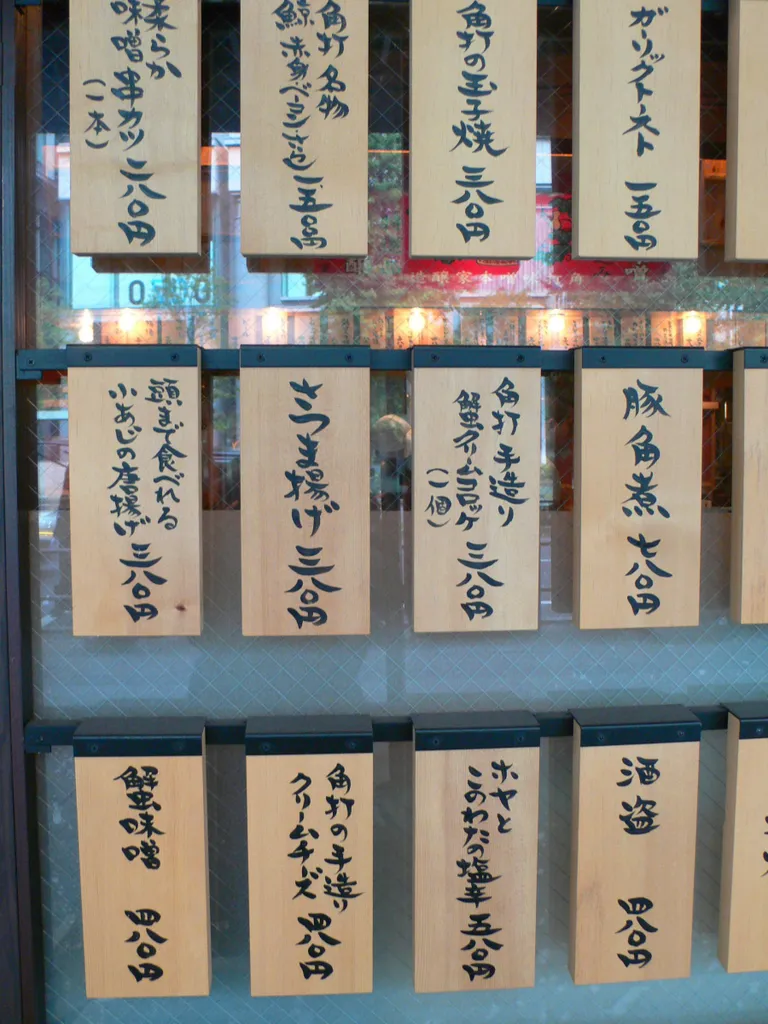 柔らか
味噌串カツ 二八〇円
(一本)
角打名物
鯨 赤身・ベーコン・さらし
角打の玉子焼 三八〇円
ガーリックトースト 一五〇円
頭まで食べれる
小あじの唐揚げ 三八〇円
さつま揚げ 三八〇円
角打手造り
蟹クリームコロッケ 三八〇円
(一個)
豚角煮 七八〇円
蟹味噌 四八〇円
角打の手造り
クリームチーズ 四八〇円
ホヤと
このわたの塩辛 五八〇円
酒盗 四八〇円